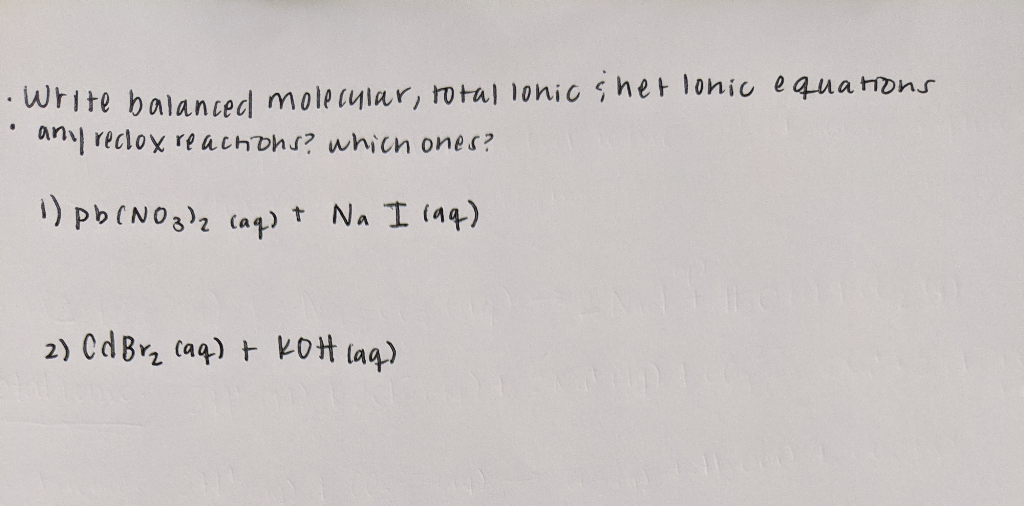 . Write balanced molecular, total ionic & net ionic equations
• any redox reactions? which ones?
1) Pb(NO₃)₂ (aq) + NaI (aq)
2) CdBr₂ (aq) + KOH (aq)